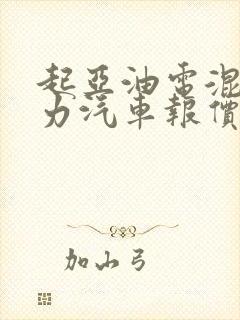 起亞油電混
力汽車報價
加山弓